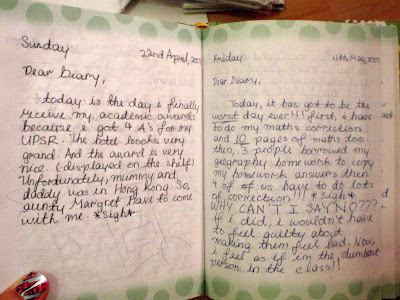 Sunday
22nd April, 200
Dear Diary,
today is the day i finally
receive my academic awards
because i got 4 A's for my
UPSR. The hotel looks very
grand. And the award is very
nice. (displayed on the shelf)
Unfortunately, mummy and
daddy was in Hong Kong. So,
aunty Margret have to come
with me. *Sigh*
Friday
11th May, 2007
Dear Diary,
Today, it has got to be the
worst day ever!!! first, i have
to do my maths correction
and 10 pages of maths too.
then, 3 people borrowed my
geography homework to copy
my homework answers then
4 of us have to do lots
of correction!!! *Sigh*
WHY CAN'T I SAY NO???
If i did, i wouldn't have
to feel guilty about
making them feel bad. Now
i feel as if i'm the dumbest
person in the class!!